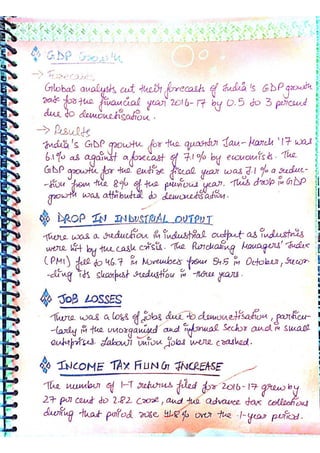 GDP Growth
→ Forecasts
Global analysts cut their forecast of India's GDP growth
rate for the financial year 2016-17 by 0.5 to 3 percent
due to demonetisation.
→ Results
India's GDP growth for the quarter Jan-March '17 was
6.1% as against a forecast of 7.1% by economists. The
GDP growth for the entire fiscal year was 7.1% a reduc-
-tion from the 8% of the previous year. This drop in GDP
growth was attributed to demonetisation.
DROP IN INDUSTRIAL OUTPUT
There was a reduction in industrial output as industries
were hit by the cash crisis. The Purchasing Managers' Index
(PMI) fell to 46.7 in November from 54.5 in October, recor-
-ding its sharpest reduction in three years.
JOB LOSSES
There was a loss of jobs due to demonetisation, particu-
-larly in the unorganised and informal sector and in small
enterprises. Labour union jobs were crashed.
INCOME TAX FILING INCREASE
The number of I-T returns filed for 2016-17 grew by
27 per cent to 2.82 crore, and the advance tax collections
during that period rose 41.8% over the 1-year period.